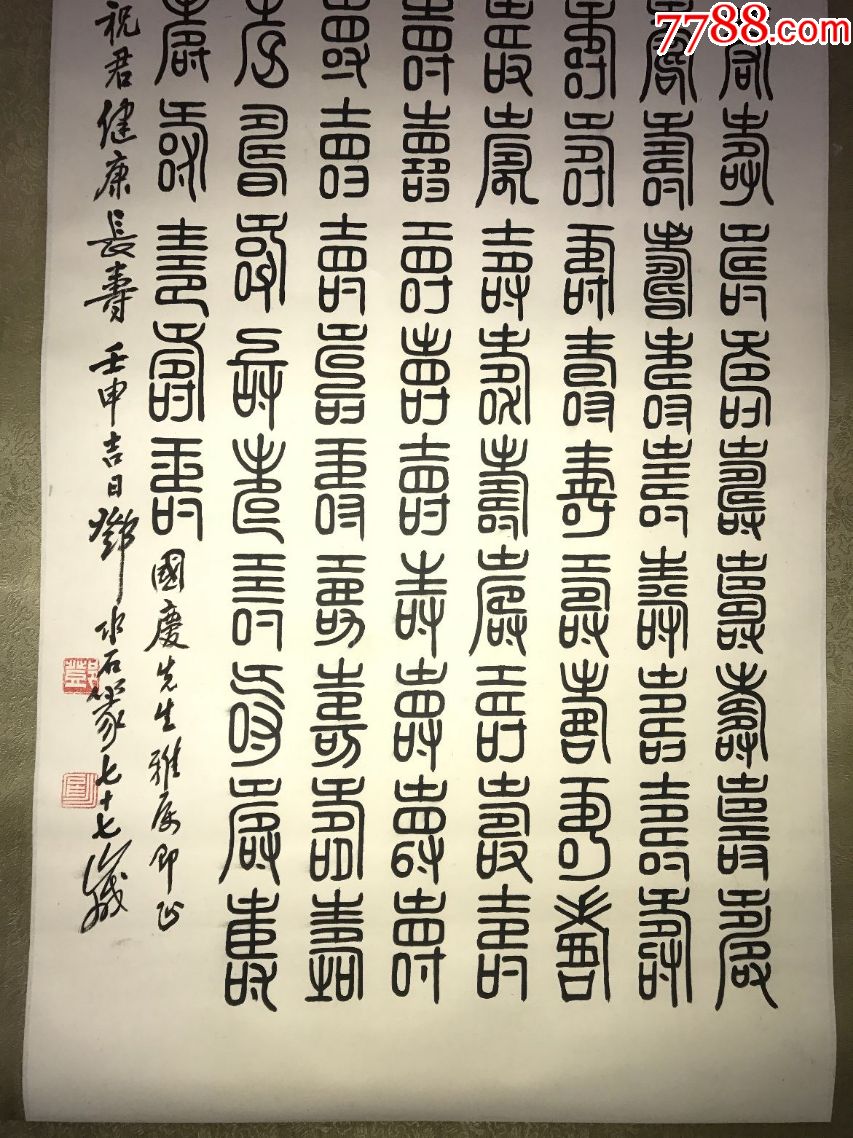 7788.com
壽壽壽壽壽壽壽壽壽
壽壽壽壽壽壽壽壽壽
壽壽壽壽壽壽壽壽壽
壽壽壽壽壽壽壽壽壽
壽壽壽壽壽壽壽壽壽
壽壽壽壽壽壽壽壽壽
壽壽壽壽壽壽壽壽壽
壽壽壽壽壽
國慶先生雅属即正
祝君健康長壽 壬申吉日 鄧石篆七十七歲